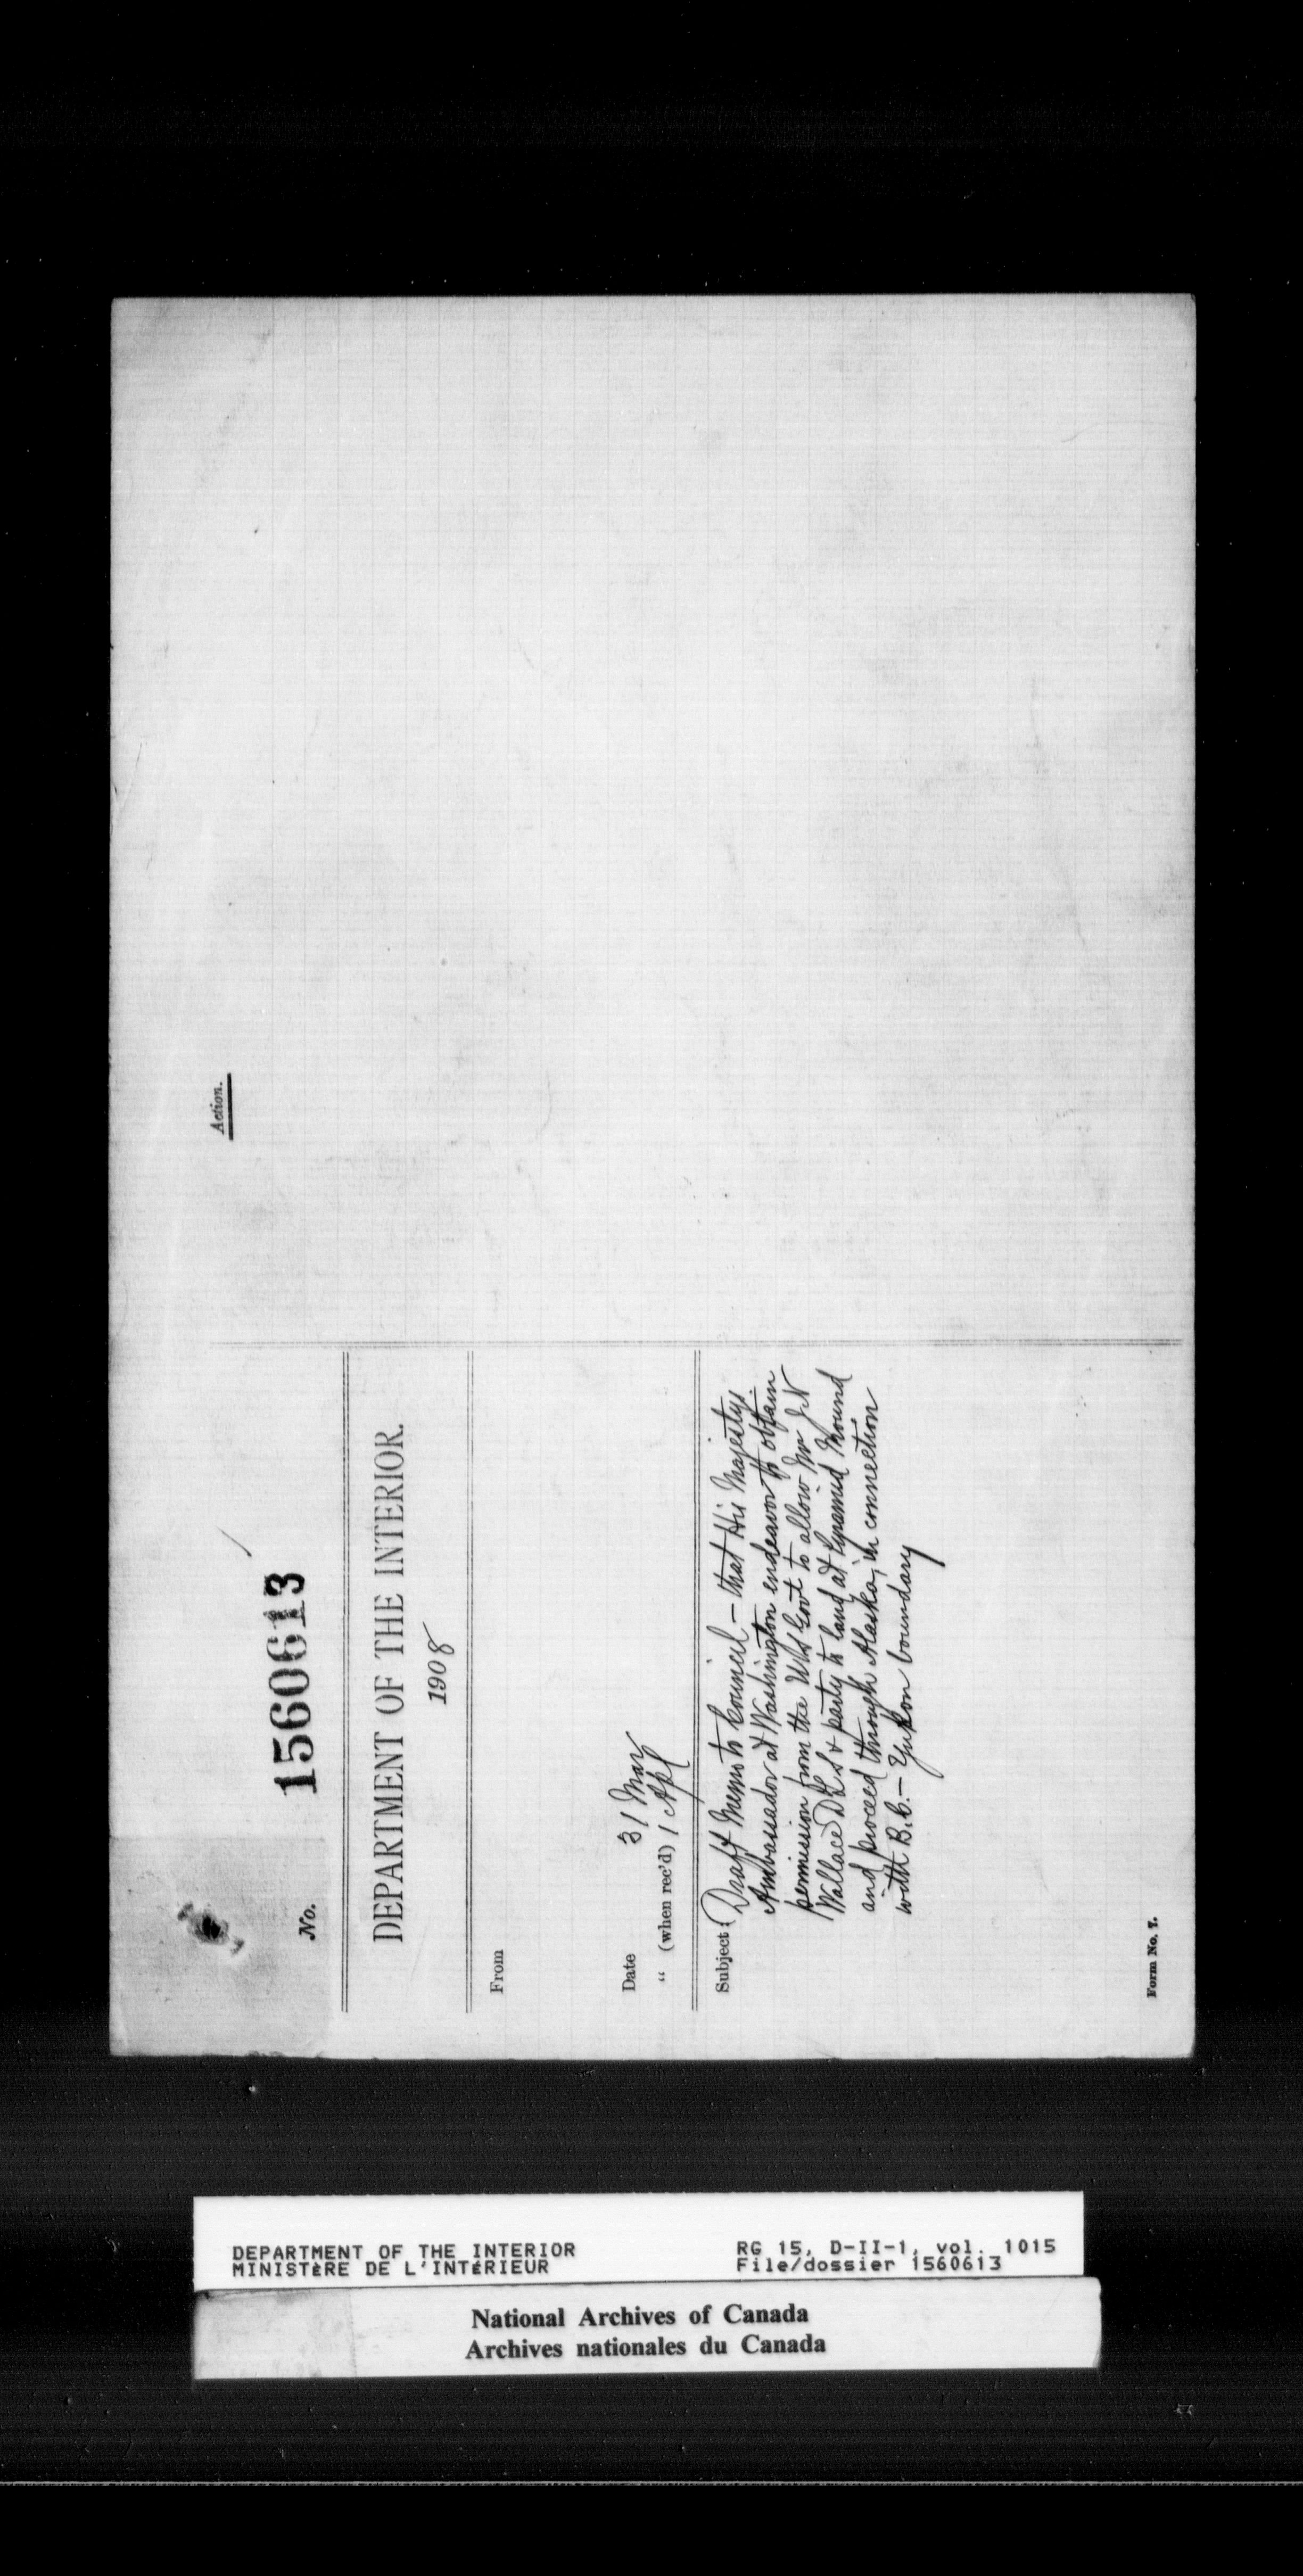 No. 1560613
DEPARTMENT OF THE INTERIOR.
1908
From
Date 31 Mar
" (when rec'd) 1 Apl
Subject: Draft Memo to Council — that His Majestys
Ambassador at Washington endeavor to obtain
permission from the US Govt to allow Mr J N
Wallace D L S & party to land at Pyramid Mound
and proceed through Alaska, in connection
with B.C. — Yukon boundary
Form No. 7.
Action.
DEPARTMENT OF THE INTERIOR
MINISTÈRE DE L'INTÉRIEUR
RG 15, D-II-1, vol. 1015
File/dossier 1560613
National Archives of Canada
Archives nationales du Canada